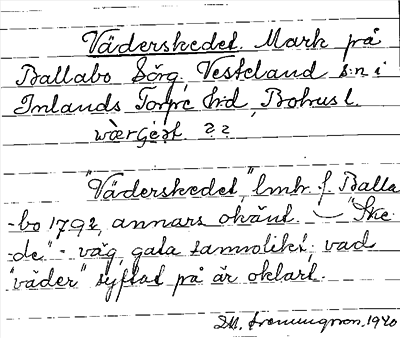 Väderskedet. Mark på
Ballabo Sörg, Vesteland s:n i
Inlands Torpe h:d, Bohusl.
wæ̀rʃeət ??
"Väderskedet" lmh. f. Balla-
-bo 1792, annars okänt. — "Ske-
de" - väg, gata sannolikt; vad
"väder" syftat på är oklart.
1920